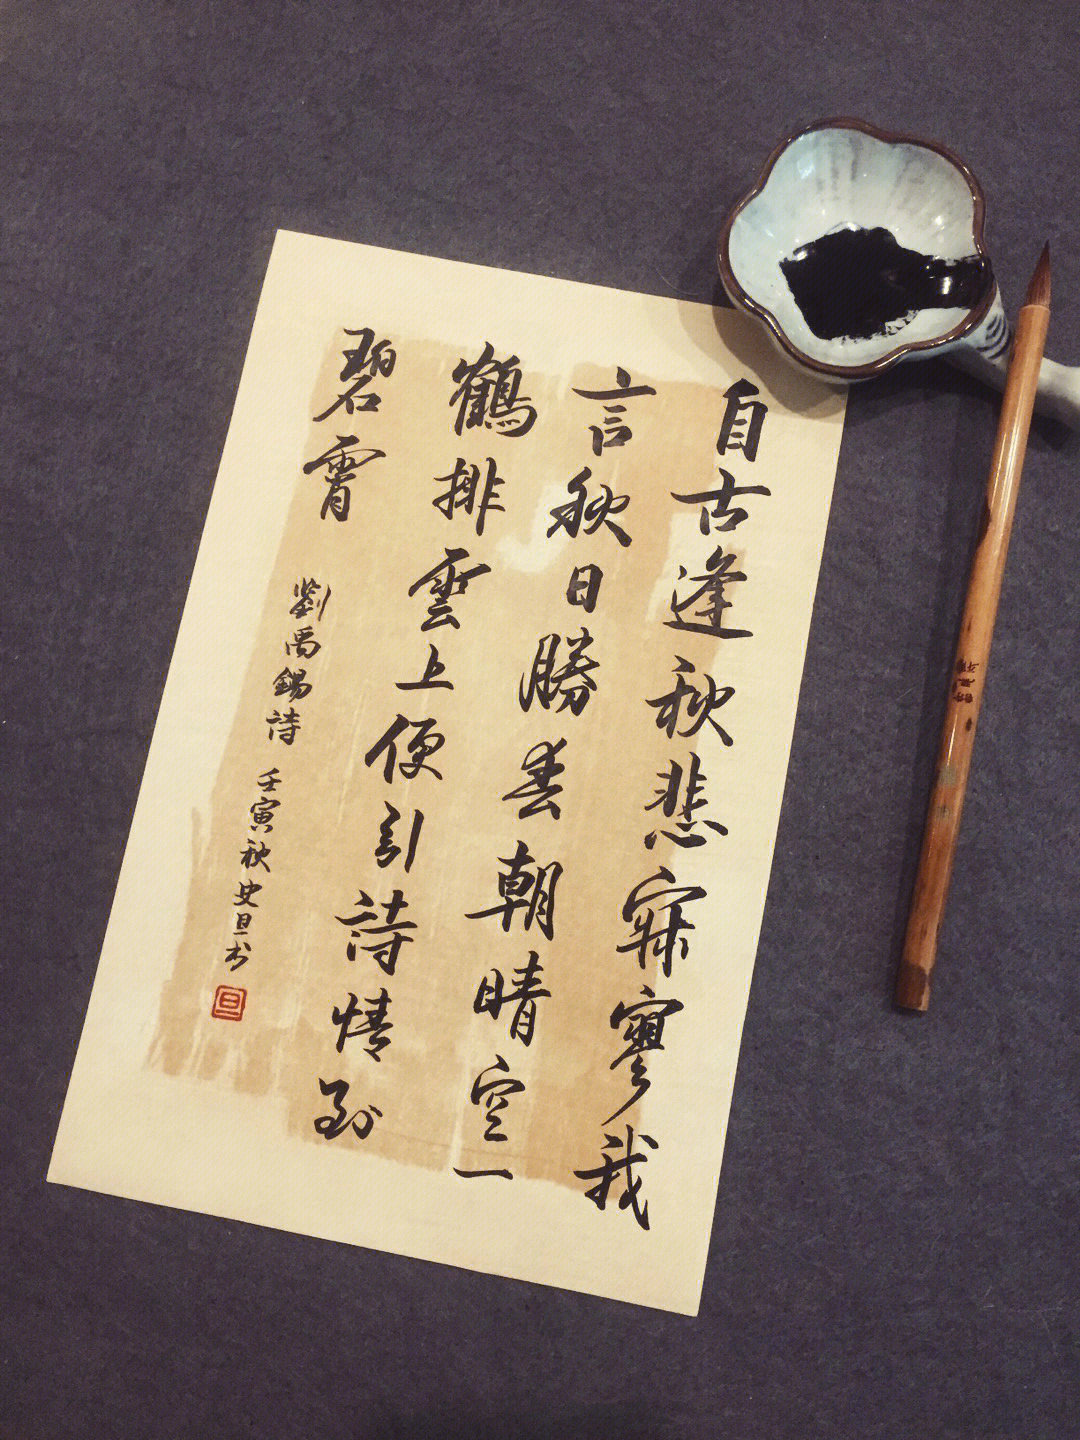 自古逢秋悲寂寥我
言秋日勝春朝晴空一
鶴排雲上便引詩情到
碧霄
劉禹錫詩 壬寅秋史旦书
旦